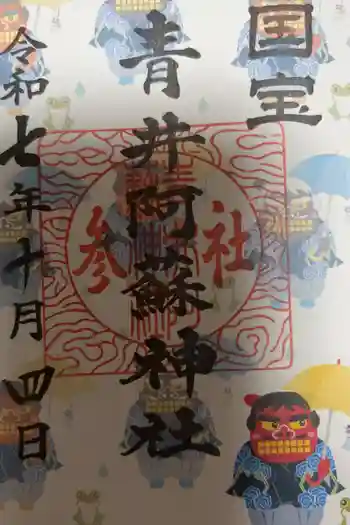 国宝
青井阿蘇神社
令和七年十月四日
参社